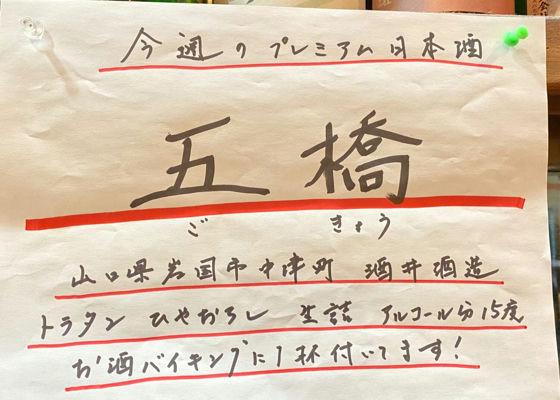 今週のプレミアム日本酒
五橋
ごきょう
山口県岩国市中津町 酒井酒造
トラタン ひやおろし 生詰 アルコール分15度
お酒バイキングに1杯付いてます!